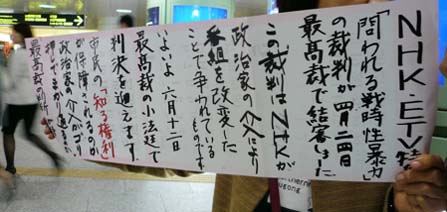 NHK・ETV特
「問われる戦時性暴力」
の裁判が四月二四日
最高裁で結審しました
この裁判はNHKが
政治家の介入により
番組を改変した
ことで争われているものです。
いよいよ 六月十二日
最高裁の小法廷で
判決を迎えます。
市民の「知る権利」
が保障されるのか
政治家の介入がゴリ
押し
最高裁の判断に
thern
ugong